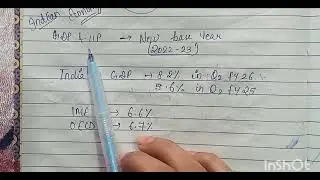 Indian Economy
GDP & IIP → New base Year
(2022-23)
India's GDP → 8.2% in Q2 FY26
5.6% in Q2 FY25
IMF → 6.6%
OECD → 6.7%
InShOt